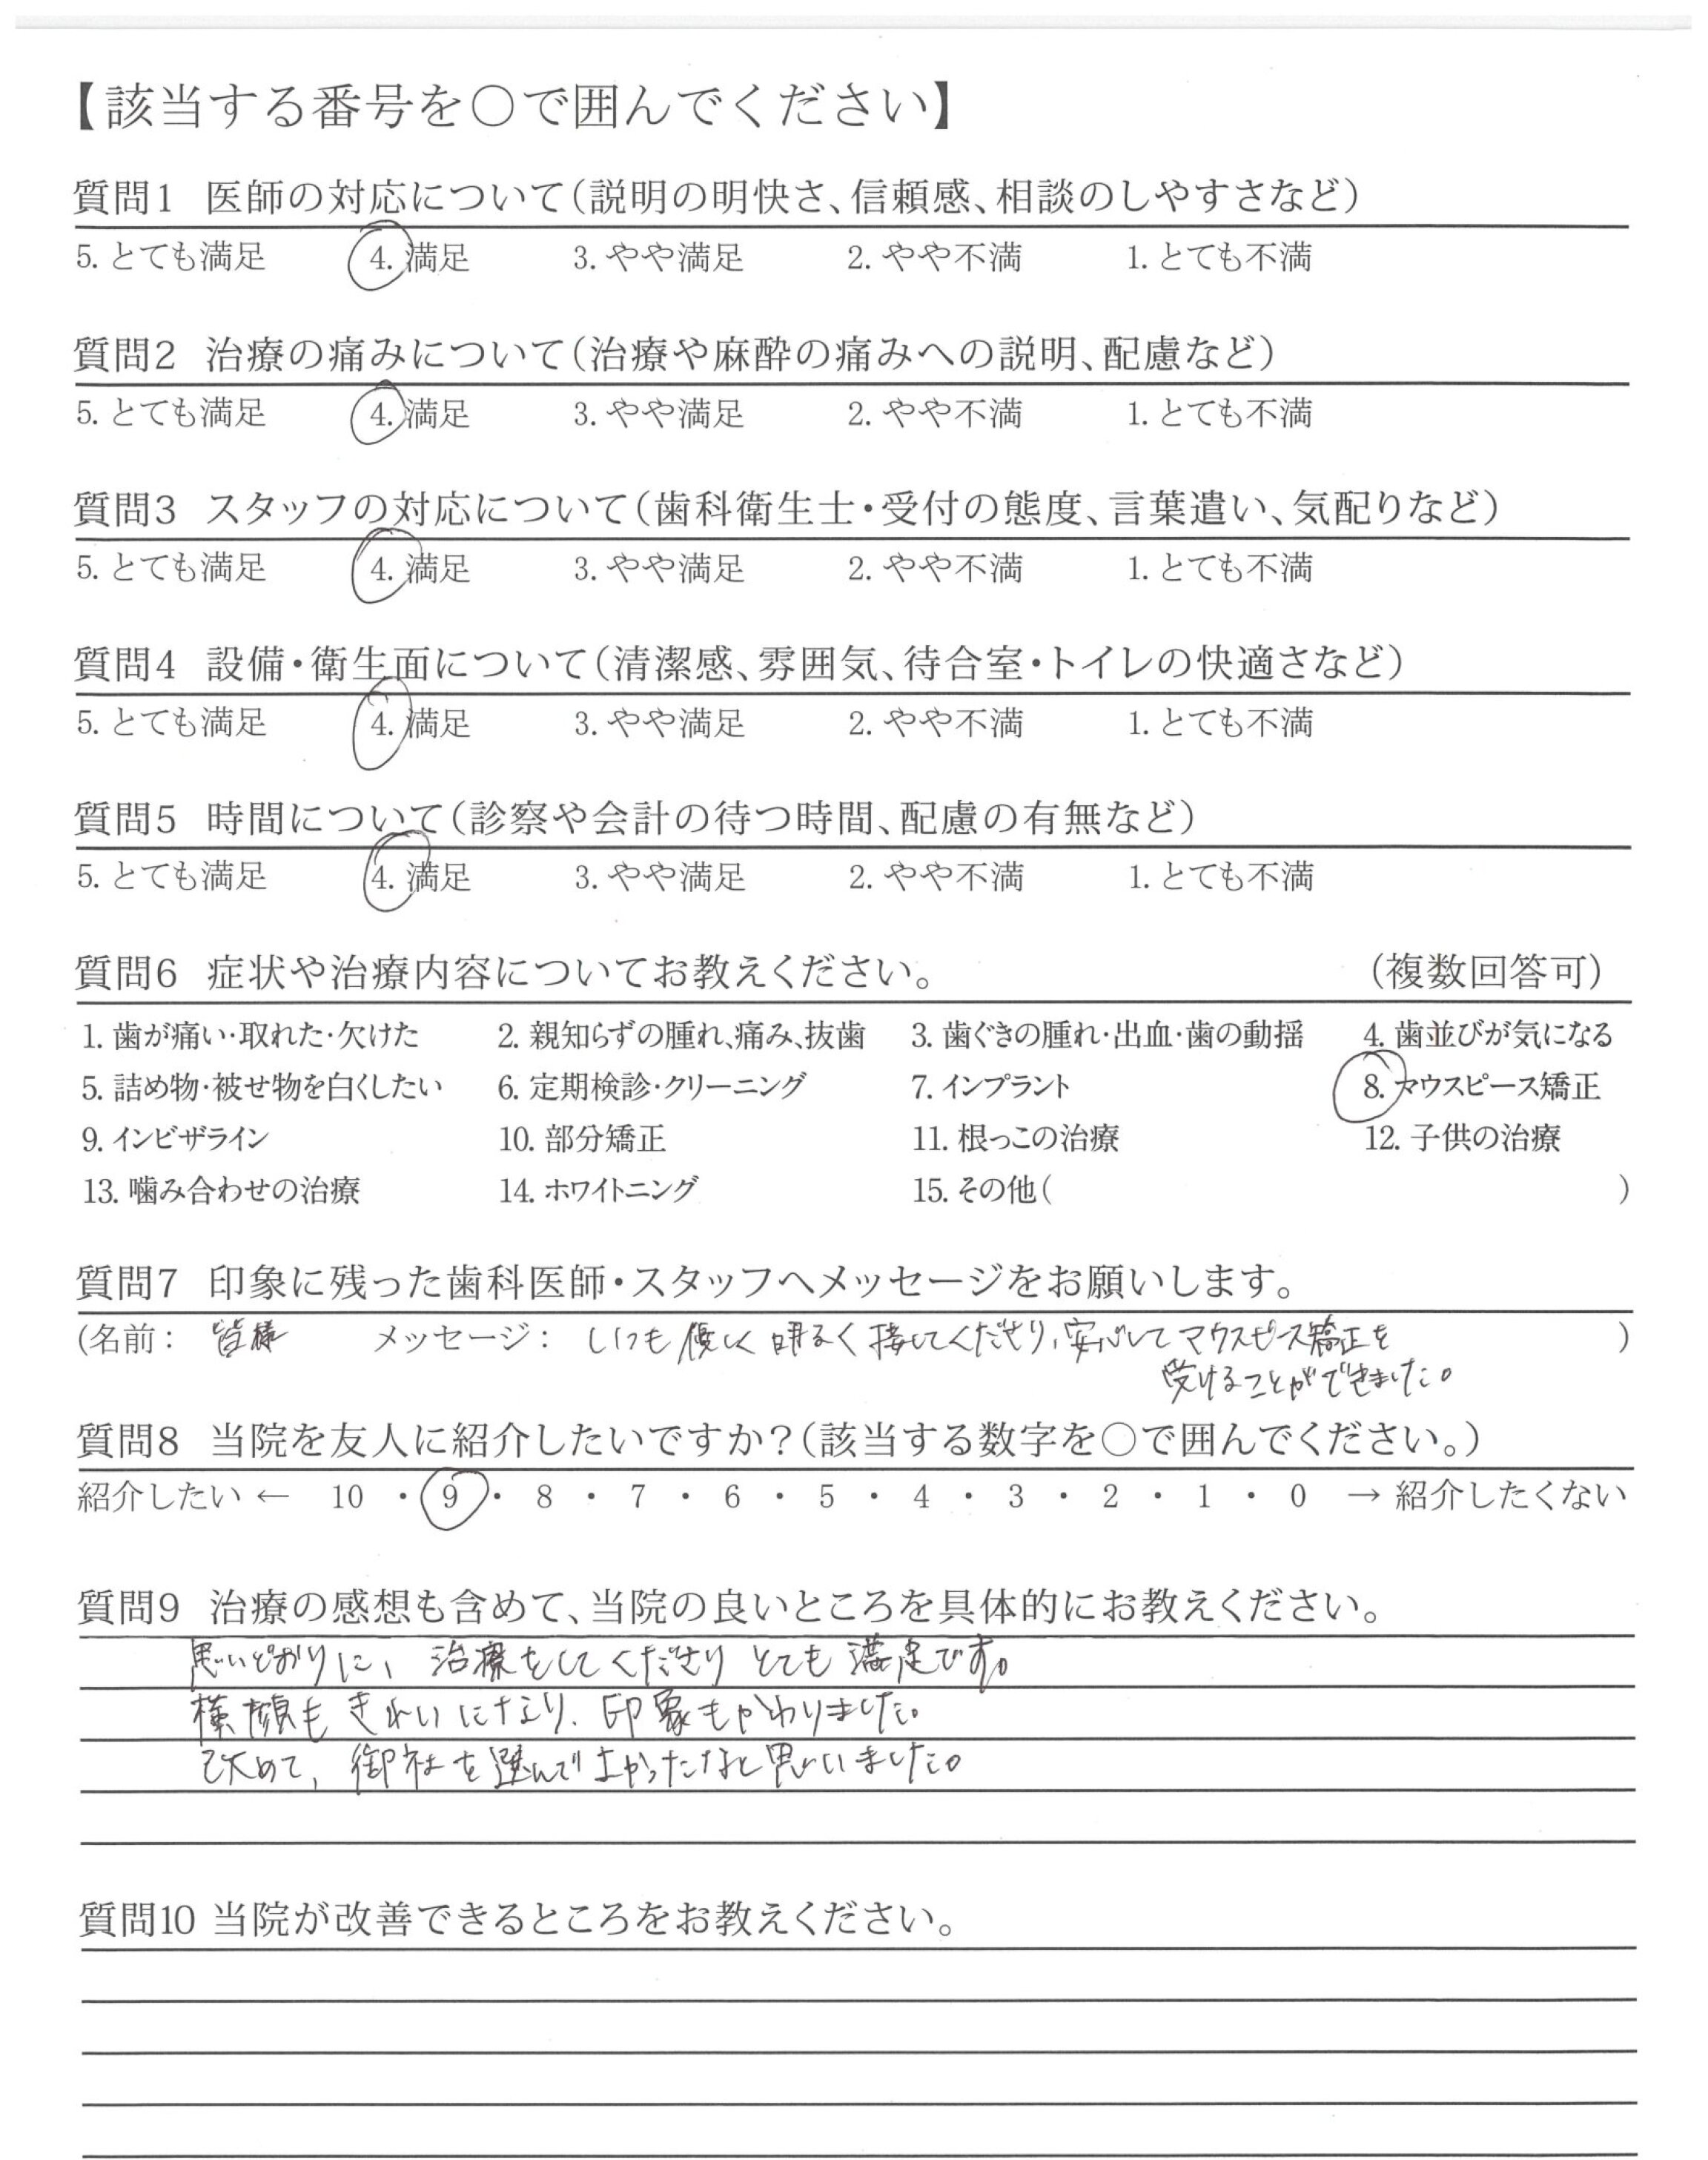 【該当する番号を○で囲んでください】
質問1 医師の対応について(説明の明快さ、信頼感、相談のしやすさなど)
5. とても満足 4. 満足 3. やや満足 2. やや不満 1. とても不満
質問2 治療の痛みについて(治療や麻酔の痛みへの説明、配慮など)
5. とても満足 4. 満足 3. やや満足 2. やや不満 1. とても不満
質問3 スタッフの対応について(歯科衛生士・受付の態度、言葉遣い、気配りなど)
5. とても満足 4. 満足 3. やや満足 2. やや不満 1. とても不満
質問4 設備・衛生面について(清潔感、雰囲気、待合室・トイレの快適さなど)
5. とても満足 4. 満足 3. やや満足 2. やや不満 1. とても不満
質問5 時間について(診察や会計の待つ時間、配慮の有無など)
5. とても満足 4. 満足 3. やや満足 2. やや不満 1. とても不満
質問6 症状や治療内容についてお教えください。 (複数回答可)
1. 歯が痛い・取れた・欠けた 2. 親知らずの腫れ、痛み、抜歯 3. 歯ぐきの腫れ・出血・歯の動揺 4. 歯並びが気になる
5. 詰め物・被せ物を白くしたい 6. 定期検診・クリーニング 7. インプラント 8. マウスピース矯正
9. インビザライン 10. 部分矯正 11. 根っこの治療 12. 子供の治療
13. 噛み合わせの治療 14. ホワイトニング 15. その他( )
質問7 印象に残った歯科医師・スタッフへメッセージをお願いします。
(名前: 皆様 メッセージ: いつも優しく明るく接してくださり、安心してマウスピース矯正を )
受けることができました。
質問8 当院を友人に紹介したいですか?(該当する数字を○で囲んでください。)
紹介したい ← 10 ・ 9 ・ 8 ・ 7 ・ 6 ・ 5 ・ 4 ・ 3 ・ 2 ・ 1 ・ 0 → 紹介したくない
質問9 治療の感想も含めて、当院の良いところを具体的にお教えください。
思いどおりに、治療をしてくださりとても満足です。
横顔もきれいになり、印象もかわりました。
改めて、御社を選んでよかったなと思いました。
質問10 当院が改善できるところをお教えください。